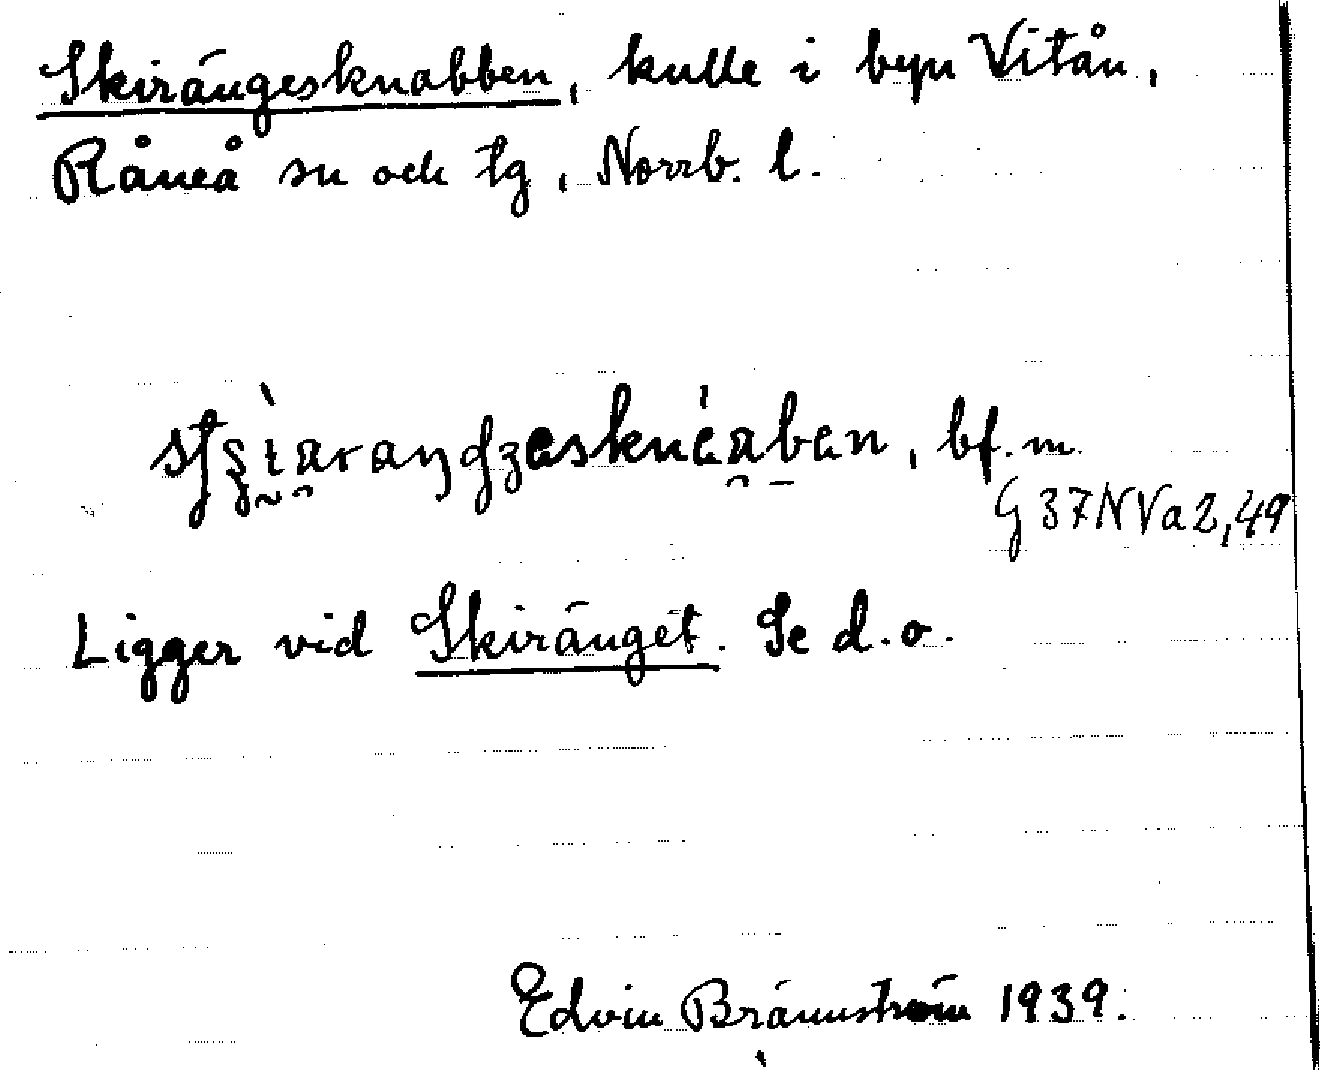 Skirängesknabben, kulle i byn Vitån,
Råneå sn och tg, Norrb. l.
bf. m.
G 37 N Va 2, 49
Ligger vid Skiränget. Se d.o.
Edvin Brännström 1939.